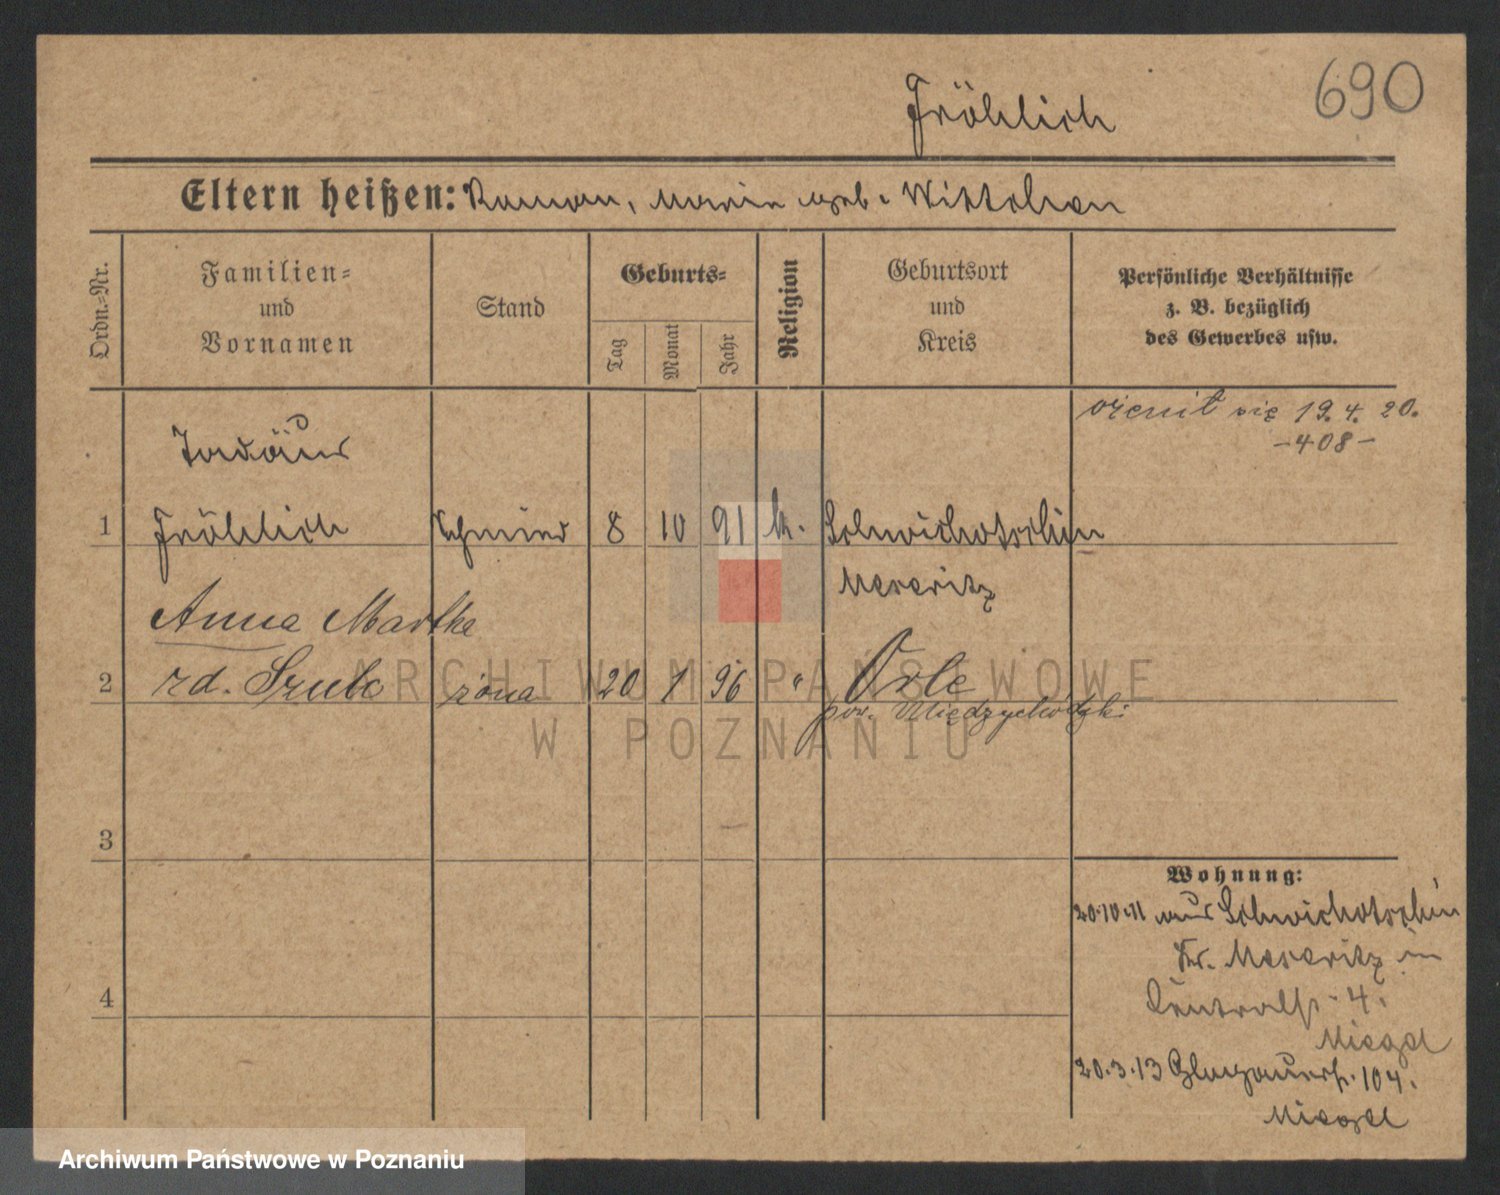 690
Fröhlich
Eltern heißen: Roman, Marie geb.
Ordn.=Nr.
Familien=
und
Vornamen
Stand
Geburts=
Tag
Monat
Jahr
Religion
Geburtsort
und
Kreis
Persönliche Verhältnisse
z. B. bezüglich
des Gewerbes usw.
ożenił się 19. 4. 20.
-408-
Tadäus
1 Fröhlich Schmied 8 10 91 k. Schwichotschin
Meseritz
Anna Martha
2 rd. żona 20 1 96 " Orle
pow. Międzychodzki
3
4
Wohnung:
20.10.11 aus Schwichotschin
Kr. Meseritz in
4.
20.3.13 Glogauerstr. 104.
ARCHIWUM PAŃSTWOWE
W POZNANIU
Archiwum Państwowe w Poznaniu